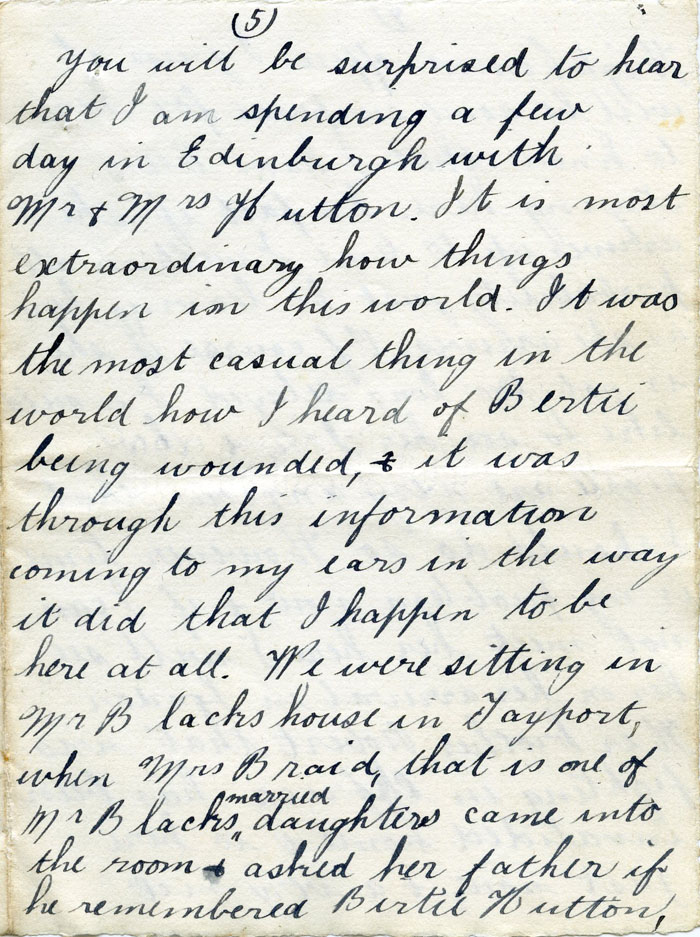 (5)
You will be surprised to hear
that I am spending a few
day in Edinburgh with
Mr & Mrs Hutton. It is most
extraordinary how things
happen in this world. It was
the most casual thing in the
world how I heard of Bertie
being wounded, & it was
through this information
coming to my ears in the way
it did that I happen to be
here at all. We were sitting in
Mr Blacks house in Tayport,
when Mrs Braid, that is one of
married
Mr Blacks " daughters came into
the room & asked her father if
he remembered Bertie Hutton,